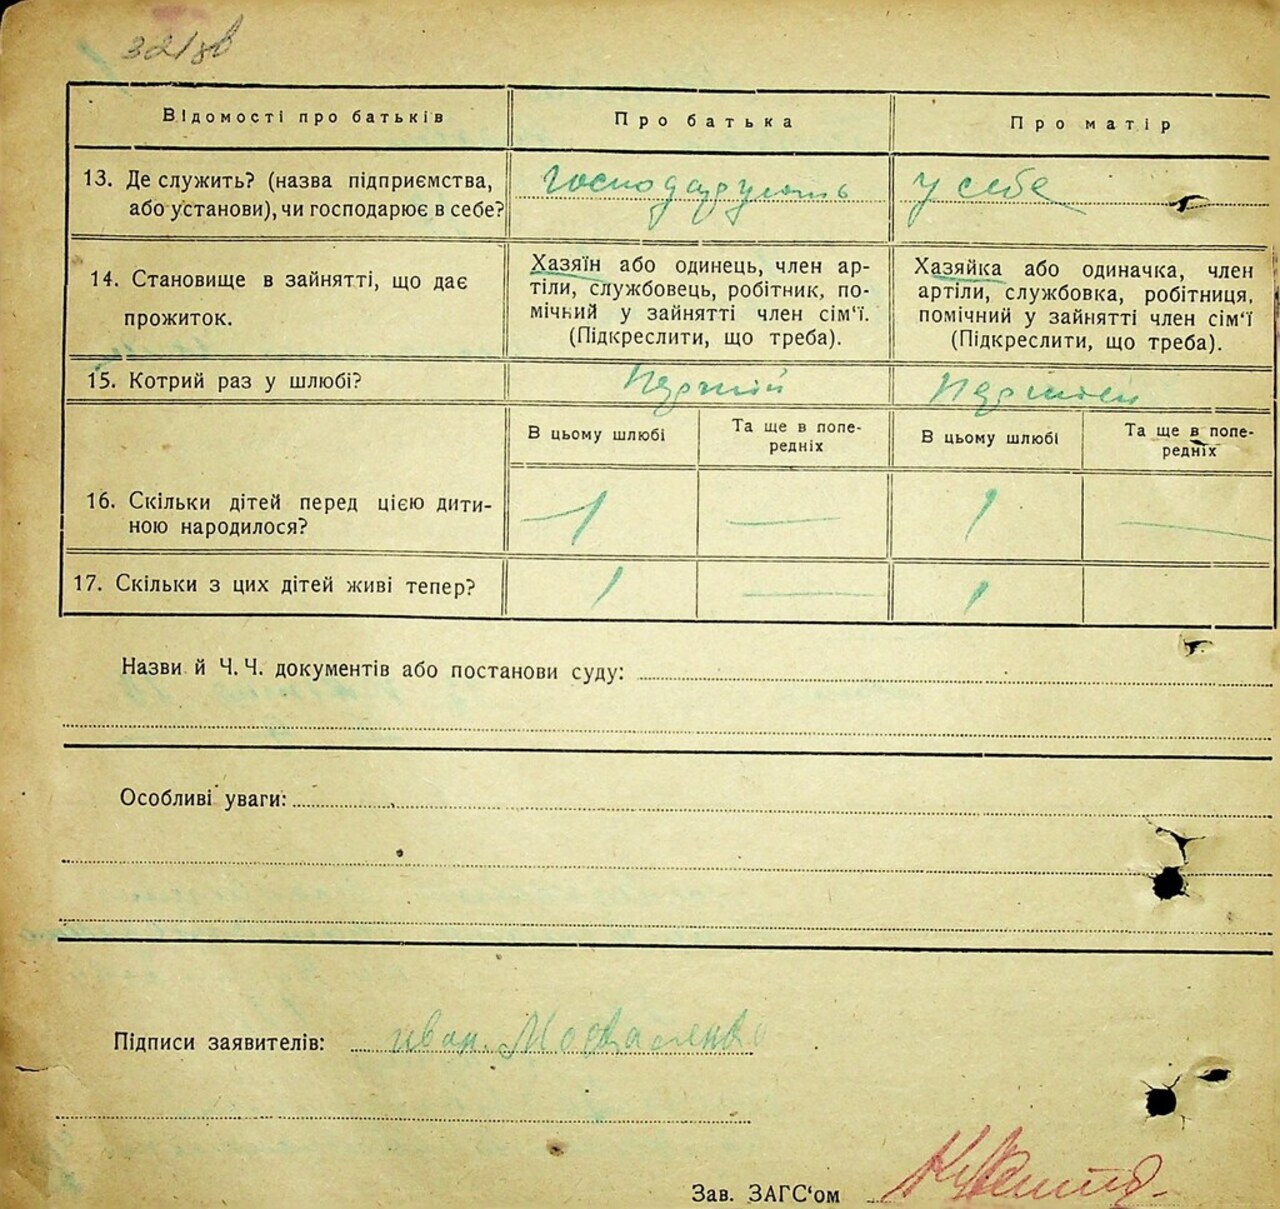 Відомості про батьків
Про батька
Про матір
13. Де служить? (назва підприємства,
або установи), чи господарює в себе?
господарують
у себе
14. Становище в зайнятті, що дає
прожиток.
Хазяїн або одинець, член ар-
тіли, службовець, робітник, по-
мічний у зайнятті член сім‘ї.
(Підкреслити, що треба).
Хазяйка або одиначка, член
артіли, службовка, робітниця,
помічний у зайнятті член сім‘ї
(Підкреслити, що треба).
15. Котрий раз у шлюбі?
В цьому шлюбі
Та ще в попе-
редніх
В цьому шлюбі
Та ще в попе-
редніх
16. Скільки дітей перед цією дити-
ною народилося?
1
—
1
—
17. Скільки з цих дітей живі тепер?
1
—
1
Назви й Ч. Ч. документів або постанови суду:
Особливі уваги:
Підписи заявителів: иван. Москаленко
Зав. ЗАГС‘ом